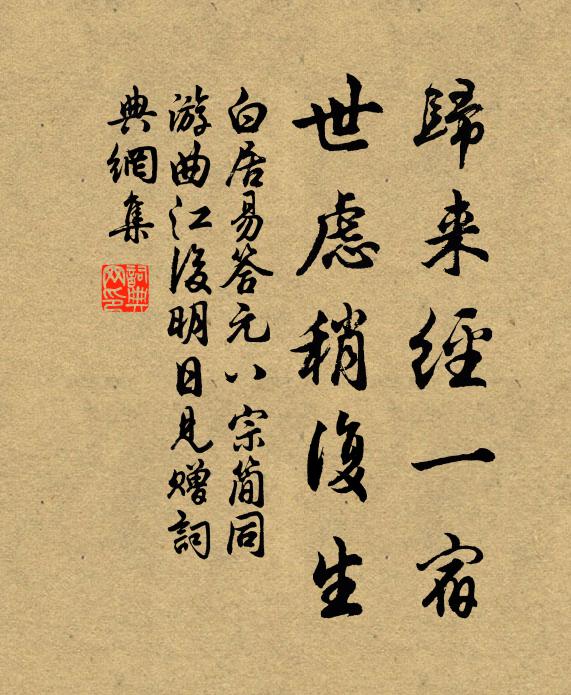 歸来經一宿
世慮稍復生
白居易答元八宗简同
游曲江後明日見赠詞
典網集
詞典網印